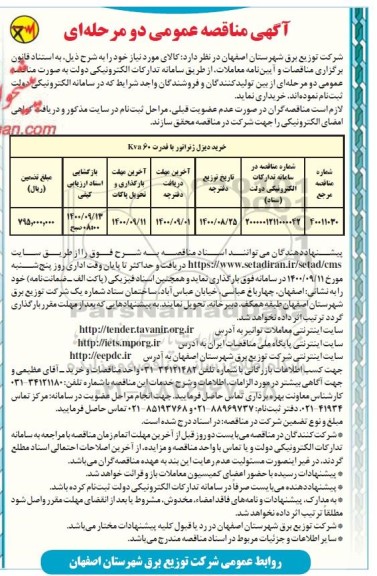 آگهی مناقصه عمومی دو مرحله‌ای
شرکت توزیع برق شهرستان اصفهان در نظر دارد: کالای مورد نیاز خود را به شرح ذیل، به استناد قانون
برگزاری مناقصات و آیین‌نامه معاملات، از طریق سامانه تدارکات الکترونیکی دولت به صورت مناقصه
عمومی دو مرحله‌ای از بین تولیدکنندگان و فروشندگان واجد شرایط که در سامانه الکترونیکی دولت
ثبت‌نام نموده‌اند، خریداری نماید.
لازم است مناقصه‌گران در صورت عدم عضویت قبلی، مراحل ثبت‌نام در سایت مذکور و دریافت گواهی
امضای الکترونیکی را جهت شرکت در مناقصه محقق سازند.
خرید دیزل ژنراتور با قدرت ۶۰ Kva
شماره مناقصه مرجع
شماره مناقصه در سامانه تدارکات الکترونیکی دولت (ستاد)
تاریخ توزیع دفترچه
آخرین مهلت دریافت دفترچه
آخرین مهلت بارگذاری و تحویل پاکات
بازگشایی اسناد ارزیابی کیفی
مبلغ تضمین (ریال)
۴۰۰۱۱۰۳۰
۱۴۰۰/۰۸/۲۵
۱۴۰۰/۰۹/۰۱
۱۴۰۰/۰۹/۱۱
۱۴۰۰/۰۹/۱۳ ۰۸:۰۰ صبح
۷۹۵,۰۰۰,۰۰۰
پیشنهاددهندگان می‌توانند اسناد مناقصه به شرح فوق را از طریق سایت
https://www.setadiran.ir/setad/cms دریافت و حداکثر تا پایان وقت اداری روز پنج‌شنبه
مورخ ۱۴۰۰/۰۹/۱۱ در سامانه فوق بارگذاری نمایند و همچنین اسناد فیزیکی (پاکت الف-ضمانت‌نامه) خود
را به نشانی: اصفهان، چهارباغ عباسی، خیابان عباس آباد، ساختمان ستاد شماره یک شرکت توزیع برق
شهرستان اصفهان طبقه همکف، دبیرخانه، تحویل نمایند. به پیشنهادهایی که بعد از مهلت مقرر بارگذاری
گردد ترتیب اثر داده نخواهد شد.
سایت اینترنتی معاملات توانیر به آدرس http://tender.tavanir.org.ir
سایت اینترنتی پایگاه ملی مناقصات ایران به آدرس http://iets.mporg.ir
سایت اینترنتی شرکت توزیع برق شهرستان اصفهان به آدرس http://eepdc.ir
جهت کسب اطلاعات بازرگانی با شماره تلفن ۳۴۱۲۱۴۸۲-۰۳۱ واحد مناقصات و خرید - آقای عظیمی و
جهت آگاهی بیشتر در مورد الزامات، اطلاعات و شرح خدمات این مناقصه با شماره تلفن: ۳۴۱۲۱۱۸۰-۰۳۱
کارشناس معاونت بهره‌برداری تماس حاصل فرمایید. جهت انجام مراحل عضویت در سامانه: مرکز تماس
۴۱۹۳۴-۰۲۱، دفتر ثبت‌نام: ۸۸۹۶۹۷۳۷-۰۲۱ و ۸۵۱۹۳۷۶۸-۰۲۱ تماس حاصل فرمایید.
مبلغ و نوع تضمین شرکت در مناقصه: در اسناد درج شده است.
* شرکت‌کنندگان در مناقصه می‌بایست دو روز قبل از آخرین مهلت اتمام زمان مناقصه با مراجعه به سامانه
تدارکات الکترونیکی دولت و یا تماس با واحد مناقصه و مزایده، از آخرین اصلاحات احتمالی اسناد مطلع
گردند، در غیر اینصورت مسئولیت عدم رعایت این بند به عهده مناقصه‌گران می‌باشد.
* پیشنهادات رسیده با حضور اعضای کمیسیون معاملات باز و قرائت خواهد شد.
* پیشنهاددهنده می‌بایست صرفاً در سامانه تدارکات الکترونیکی دولت ثبت‌نام کرده باشد.
* به مدارک، پیشنهادات و نامه‌های فاقد امضاء، مخدوش، مشروط یا بعد از انقضای مهلت مقرر واصل شود
مطلقاً ترتیب اثر داده نخواهد شد.
* شرکت توزیع برق شهرستان اصفهان در رد یا قبول کلیه پیشنهادات مختار می‌باشد.
* سایر اطلاعات و جزئیات مربوط در اسناد مناقصه مندرج می‌باشد.
روابط عمومی شرکت توزیع برق شهرستان اصفهان